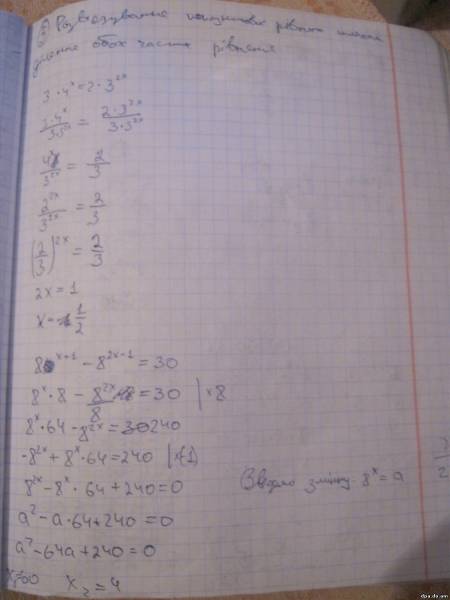 2) Розв'язування показникових рівнянь шляхом
ділення обох частин рівняння
3 · 4^x = 2 · 3^{2x}
\frac{3 · 4^x}{3 · 3^{2x}} = \frac{2 · 3^{2x}}{3 · 3^{2x}}
\frac{4^x}{3^{2x}} = \frac{2}{3}
\frac{2^{2x}}{3^{2x}} = \frac{2}{3}
(\frac{2}{3})^{2x} = \frac{2}{3}
2x = 1
x = \frac{1}{2}
8^{x+1} - 8^{2x-1} = 30
8^x · 8 - \frac{8^{2x}}{8} = 30 | ×8
8^x · 64 - 8^{2x} = 240
-8^{2x} + 8^x · 64 = 240 | (-1)
8^{2x} - 8^x · 64 + 240 = 0
Введемо зміну 8^x = a
a^2 - a · 64 + 240 = 0
a^2 - 64a + 240 = 0
x_2 = 4
dpa.do.am